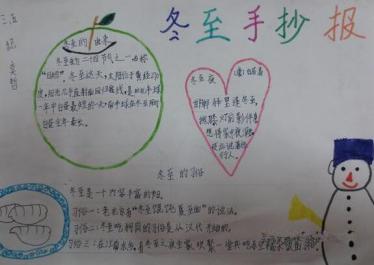 冬至手抄报
三五
冬至的由来
冬至是二十四节气之一也称
"日短"。冬至这天,太阳位于黄经270
度,阳光几乎直射南回归线,是北半球
一年中白昼最短的一天
白昼
冬至夜
(唐)白居易
邯郸驿里逢冬至,
抱膝灯前影伴身
想得家中夜深坐,
还应说着远
行人。
冬至的习俗
冬至是一个内容丰富的节日。
习俗一:老北京有"冬至馄饨夏至面"的说法。
习俗二:冬至吃狗肉的习俗是从汉代开始的。
习俗三:在江南水乡,有冬至之夜全家欢聚一堂共吃赤豆糯米饭的习俗